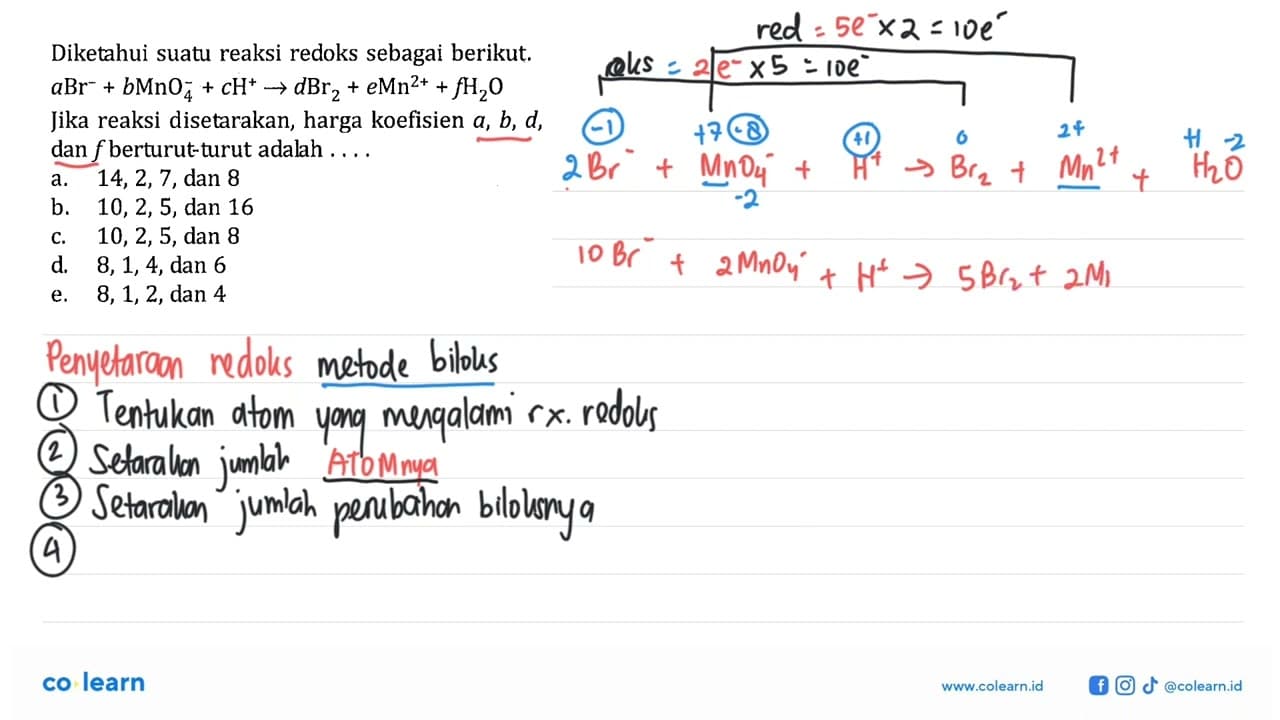 Diketahui suatu reaksi redoks sebagai berikut.
aBr⁻ + bMnO₄⁻ + cH⁺ → dBr₂ + eMn²⁺ + fH₂O
Jika reaksi disetarakan, harga koefisien a, b, d,
dan f berturut-turut adalah . . . .
a. 14, 2, 7, dan 8
b. 10, 2, 5, dan 16
c. 10, 2, 5, dan 8
d. 8, 1, 4, dan 6
e. 8, 1, 2, dan 4
red = 5e⁻ × 2 = 10e⁻
oks = 2e⁻ × 5 = 10e⁻
-1 +7 -8 +1 0 2+ +1 -2
2Br⁻ + MnO₄⁻ + H⁺ → Br₂ + Mn²⁺ + H₂O
-2
10Br⁻ + 2MnO₄⁻ + H⁺ → 5Br₂ + 2M
Penyetaraan redoks metode biloks
1 Tentukan atom yang mengalami rx. redoks
2 Setarakan jumlah ATOMnya
3 Setarakan jumlah perubahan biloksnya
4
co learn
www.colearn.id
@colearn.id